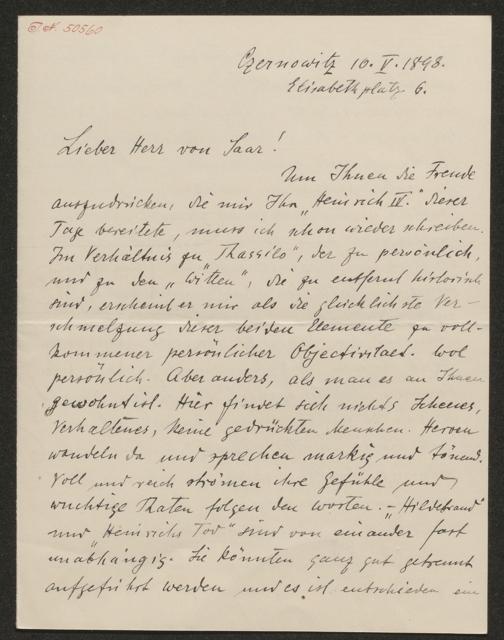 I.N. 50560
Czernowitz 10. V. 1898.
Elisabethplatz 6.
Lieber Herr von Saar!
Um Ihnen die Freude
auszudrücken, die mir Ihr „Heinrich IV." dieser
Tage bereitete, muss ich schon wieder schreiben.
Im Verhältnis zu „Thassilo", der zu persönlich,
und zu den „Witten", die zu entfernt historisch
sind, erscheint er mir als die glücklichste Ver-
schmelzung dieser beiden Elemente zu voll-
kommener persönlicher Objectivitaet. Wol
persönlich. Aber anders, als man es an Ihnen
gewohnt ist. Hier findet sich nichts Scheues,
Verhaltenes, keine gedrückten Menschen. Heroen
wandeln da und sprechen markig und tönend.
Voll und reich strömen ihre Gefühle und
wuchtige Thaten folgen den Worten. – „Hildebrand"
und „Heinrichs Tod" sind von einander fast
unabhängig. Sie könnten ganz gut getrennt
aufgeführt werden und es ist entschieden ein